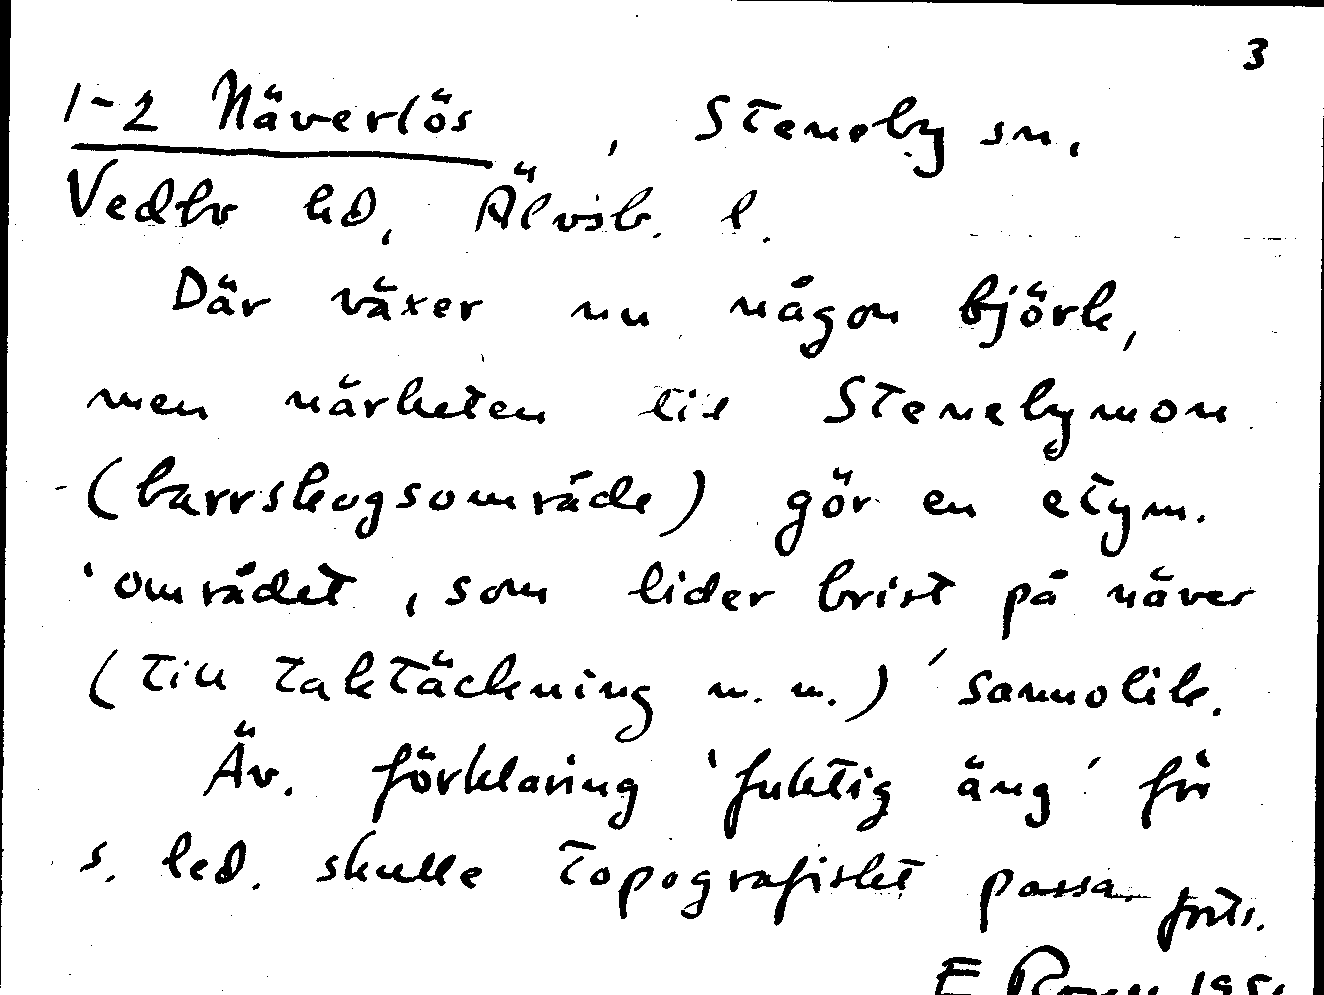 3
1-2 Näverlös, Steneby sn,
Vedbo hd, Älvsb. l.
Där växer nu någon björk,
men närheten till Stenebymon
(barrskogsområde) gör en etym.
'området, som lider brist på näver
(till taktäckning m.m.)' sannolik.
Äv. förklaring 'fuktig äng' för
s. led. skulle topografiskt passa. forts.
E